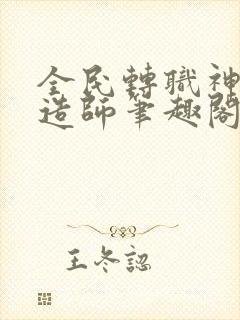 全民轉職神
造師筆趣閣
王冬認